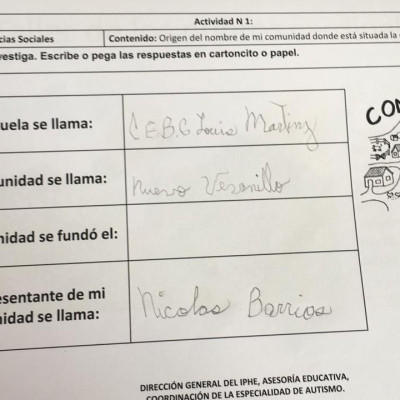 Actividad N 1:
cias Sociales
Contenido: Origen del nombre de mi comunidad donde está situada la
vestiga. Escribe o pega las respuestas en cartoncito o papel.
uela se llama:
C.E.B.G Louis Martinz
unidad se llama:
nuevo Veranillo
nidad se fundó el:
esentante de mi
nidad se llama:
Nicolas Barrios
DIRECCIÓN GENERAL DEL IPHE, ASESORÍA EDUCATIVA,
COORDINACIÓN DE LA ESPECIALIDAD DE AUTISMO.